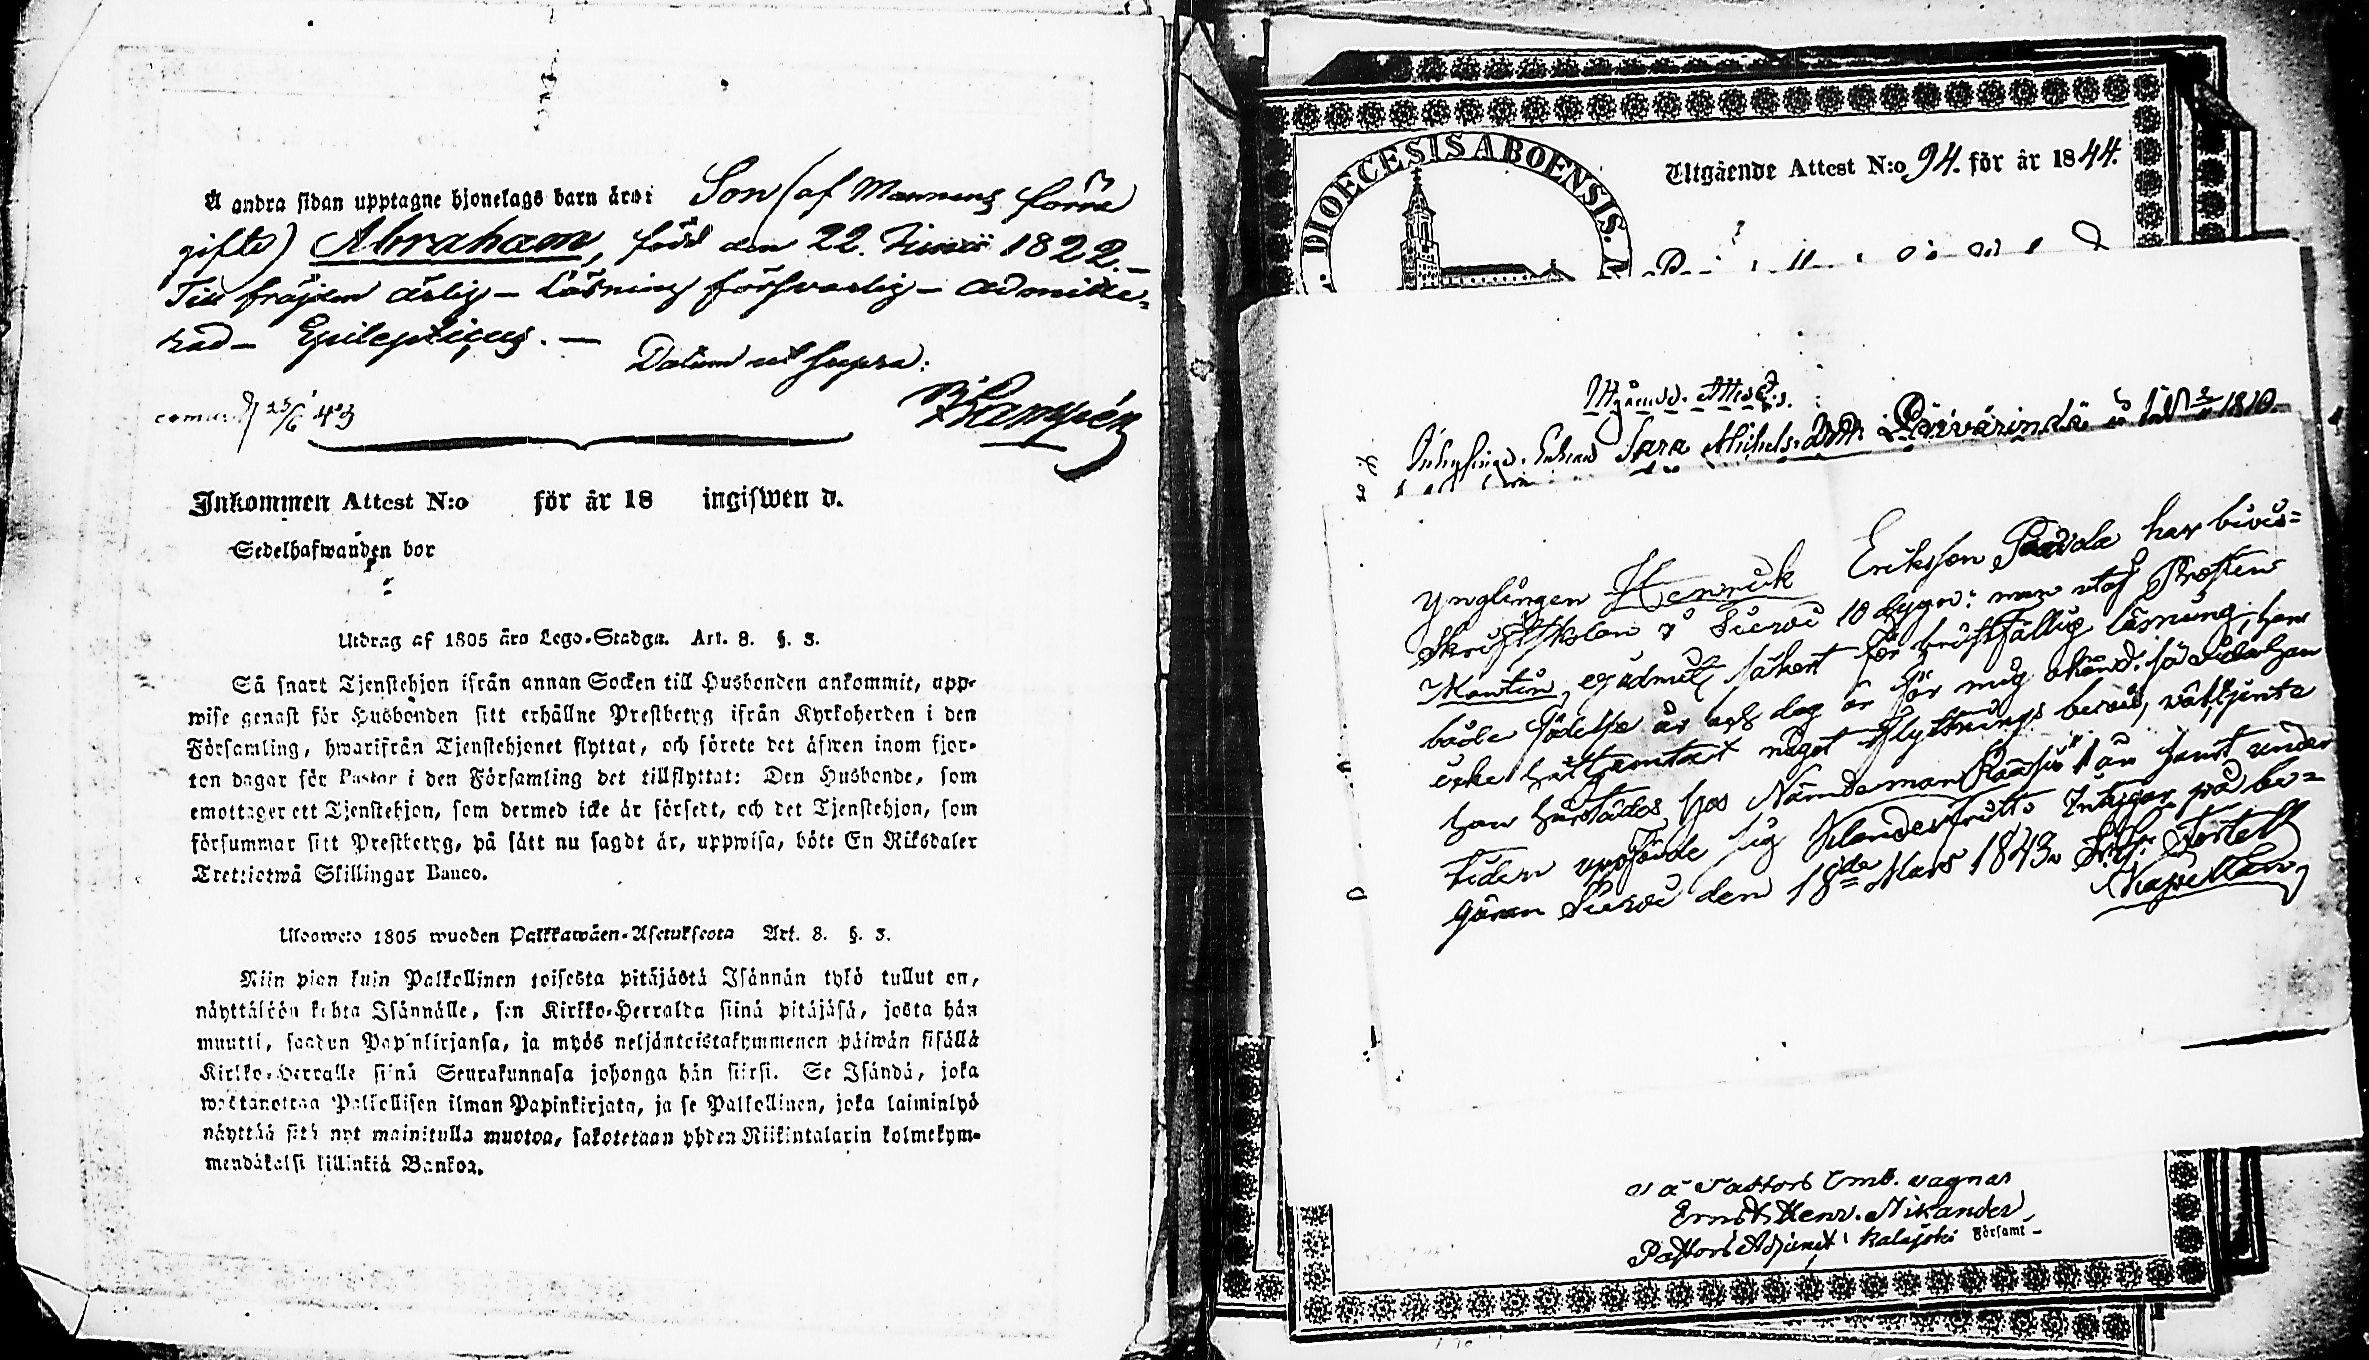 Å andra sidan upptagne hjonelags barn äro: Son (af Mannens förra
gifte) Abraham, född den 22. Junii 1822.—
Till fräjden ärlig — Läsning försvarlig — admitte=
rad — Epilepticus. —
Datum ut supra:
23/6 43
Inkommen Attest N:o för år 18 ingiswen d.
Sedelhafwanden bor
Utdrag af 1805 års Lego-Stadga. Art. 8. §. 3.
Så snart Tjenstehjon ifrån annan Socken till Husbonden ankommit, upp-
wise genast för Husbonden sitt erhållne Prestbetyg ifrån Kyrkoherden i den
Församling, hwarifrån Tjenstehjonet flyttat, och förete det äfwen inom fjor-
ton dagar för Pastor i den Församling det tillflyttat: Den Husbonde, som
emottager ett Tjenstehjon, som dermed icke är försedt, och det Tjenstehjon, som
försummar sitt Prestbetyg, på sätt nu sagdt är, uppwisa, böte En Riksdaler
Trettiotwå Skillingar Banco.
Ulosweto 1805 wuoden Palkkawäen-Asetuksesta Art. 8. §. 3.
Niin pian kuin Palkollinen toisesta pitäjästä Isännän tykö tullut on,
näyttäköön kohta Isännälle, sen Kirkko-Herralda siinä pitäjäsä, josta hän
muutti, saadun Papinkirjansa, ja myös neljänteistakymmenen päiwän sisällä
Kirkko-Herralle siinä Seurakunnasa johonga hän siirsi. Se Isändä, joka
wastanottaa Palkollisen ilman Papinkirjata, ja se Palkollinen, joka laiminlyö
näyttää sitä nyt mainitulla muotoa, sakotetaan yhden Riikintalarin kolmekym-
mendäkaksi killinkiä Bankoa.
DIOECESIS ABOENSIS.
Utgående Attest N:o 94. för år 1844.
Utgående. Attest.
Enkan Sara Michelsdotr 1810.
Ynglingen Henrik Eriksson har bevis=
Skriftskolan i Sievi 10 dygn: men utaf Prosten
Montin, ej admitt, säkert för bristfällig läsning; hans
både födelse år och dag är för mig okänd. så sedan han
icke hit hemtat något flyttnings bevis,
han härstädes hos Nämdeman
tiden uppförde sig Klanderfritt. Intygar på be=
gäran Sievi den 18de Mars 1843.
Kapellan
Pastors Embetvagnar
Ernst Henr. Nikander
Pastors Adjunct i Kalajoki Församl—